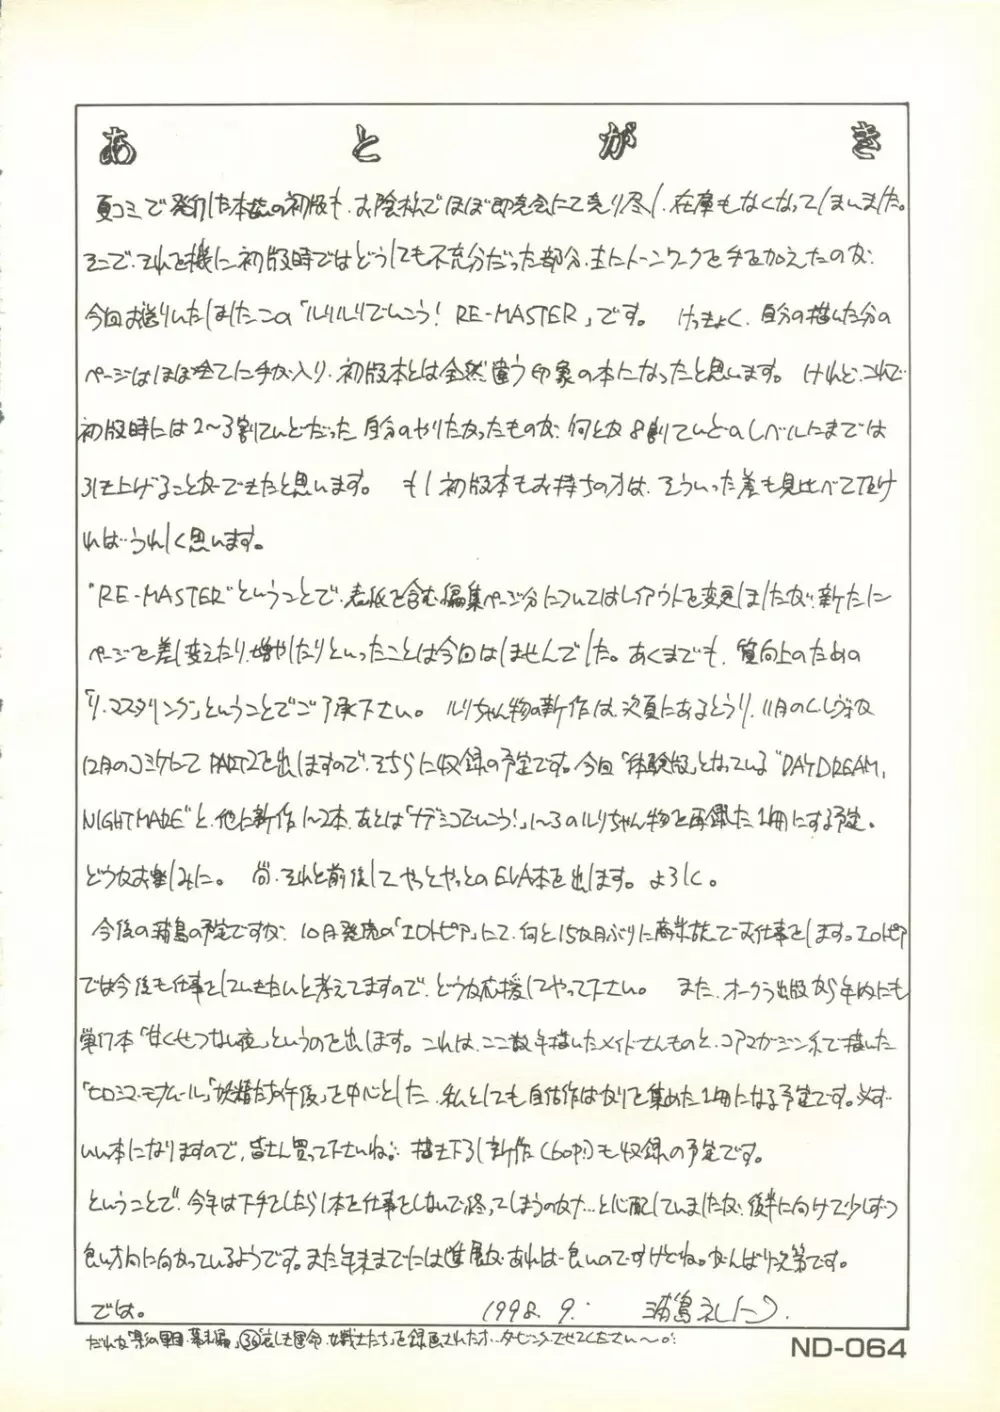 あとがき
夏コミで発行した本誌の初版も、お陰様でほぼ即売会にて売り尽し、在庫もなくなってしまいました。
そこで、それを機に、初版時ではどうしても不充分だった部分、主にトーンワークを手を加えたのが、
今回お送りいたしましたこの「ルリルリでいこう! RE-MASTER」です。 けっきょく、自分の描いた分の
ページはほぼ全てに手が入り、初版本とは全然違う印象の本になったと思います。 けれど、これで
初版時には2〜3割ていどだった自分のやりたかったものが、何とか8割ていどのレベルにまでは
引き上げることができたと思います。 もし初版本もお持ちの方は、そういった差も見比べて頂け
れば、うれしく思います。
"RE-MASTER"ということで、表紙を含む編集ページ分についてはレイアウトを変更しましたが、新たに
ページを差し変えたり、増やしたりといったことは今回はしませんでした。あくまでも、質向上のための
「リ・マスタリング」ということでご了承下さい。 ルリちゃん物の新作は、次頁にあるとうり、11月のCレヴォか
12月のコミケにて PART2を出しますので、そちらに収録の予定です。今回「体験版」となっている"DAYDREAM,
NIGHTMARE"と、他に新作1〜2本、あとは「ナデシコでいこう!」1〜3のルリちゃん物を再録した1冊にする予定。
どうかお楽しみに。 尚、それと前後してやっとやっとのEVA本を出します。よろしく。
今後の浦島の予定ですが、10月発売の「エロトピア」にて、何と15か月ぶりに商業誌でお仕事をします。エロトピア
では今後も仕事をしていきたいと考えてますので、どうか応援してやって下さい。 また、オークラ出版から年内にも
単行本「甘くせつない夜」というのを出します。これは、ここ数年描いたメイドさんものと、コアマガジン系で描いた
「ヒロシマ・モナムール」「妖精たちの午後」を中心とした、私としても自信作ばかりを集めた1冊になる予定です。必ず
いい本になりますので、皆さん買って下さいね。 描き下ろし新作(60P!)も収録の予定です。
ということで、今年は下手をしたら1本も仕事をしないで終ってしまうのかナ…と心配していましたが、後半に向けて少しずつ
良い方向に向かっているようです。また年末までには進展があれば良いのですけどね。がんばり次第です。
では。 1998. 9. 浦島礼仁
だれか
ND-064